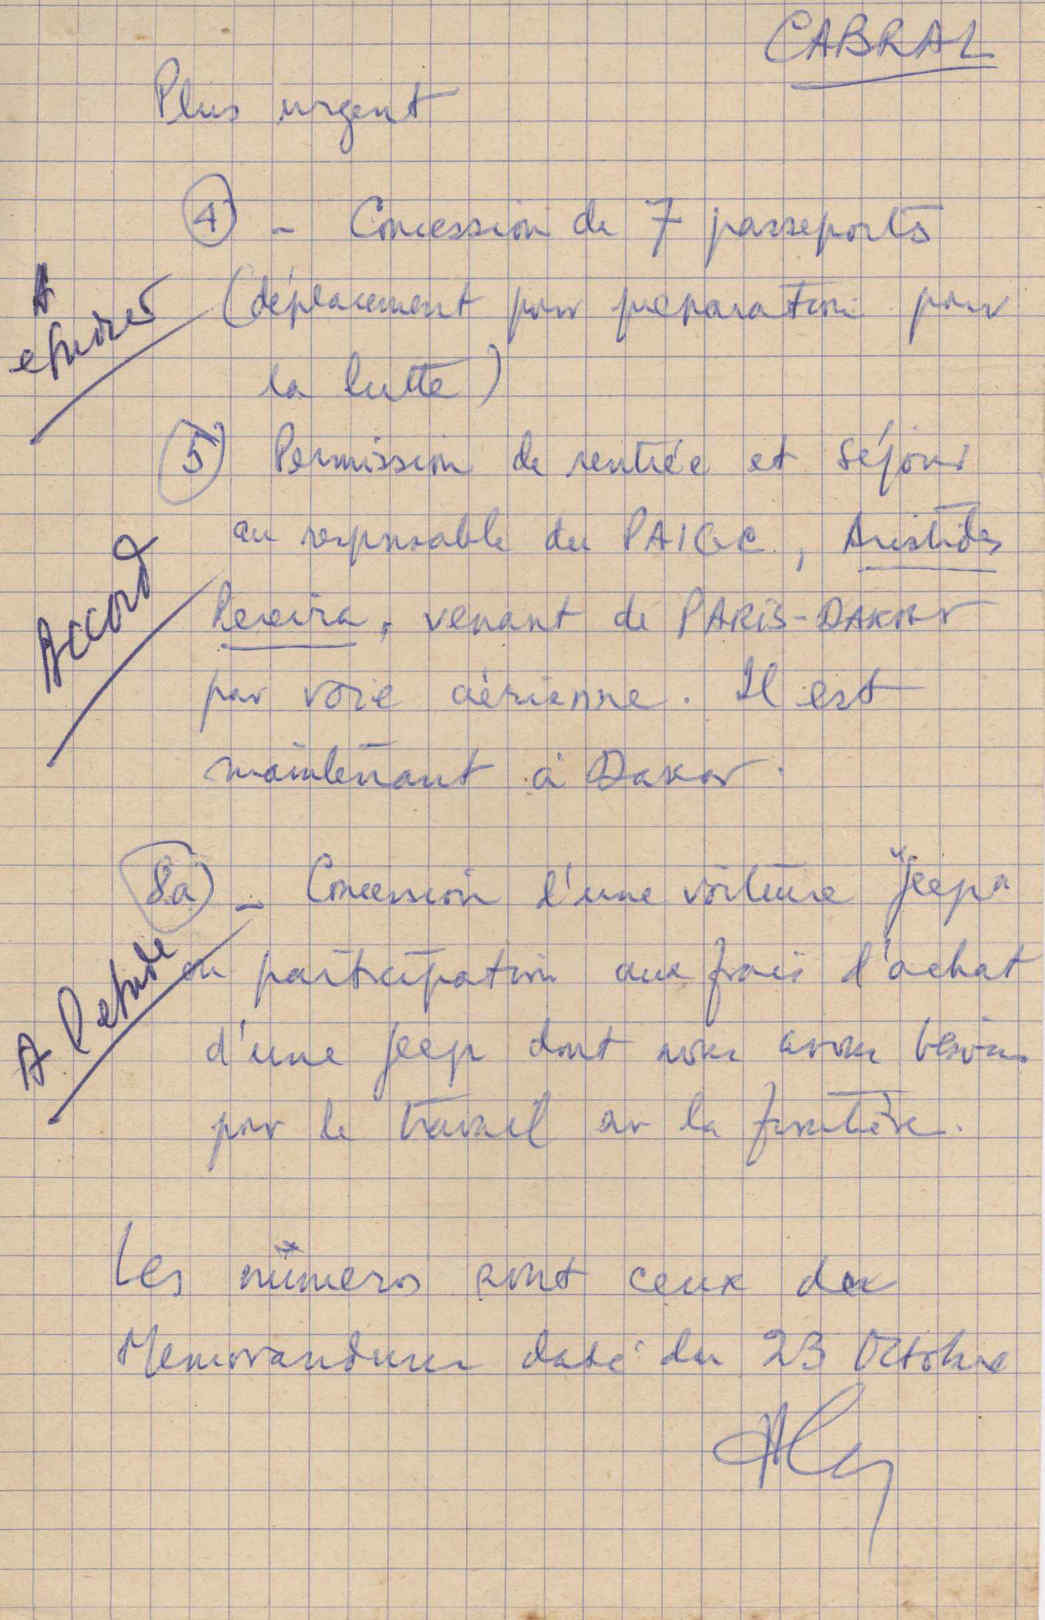 CABRAL
Plus urgent
4 - Concession de 7 passeports
A
etudier
(déplacement pour préparation pour
la lutte)
5) Permission de rentrée et séjour
au responsable du PAIGC, Aristides
Accord
Pereira, venant de PARIS-DAKAR
par voie aérienne. Il est
maintenant à Dakar.
8a) - Concession d'une voiture Jeep
A l'etude
ou participation aux frais d'achat
d'une Jeep dont nous avons besoin
pour le travail sur la frontière.
Les numéros sont ceux du
Memorandum daté du 23 Octobre